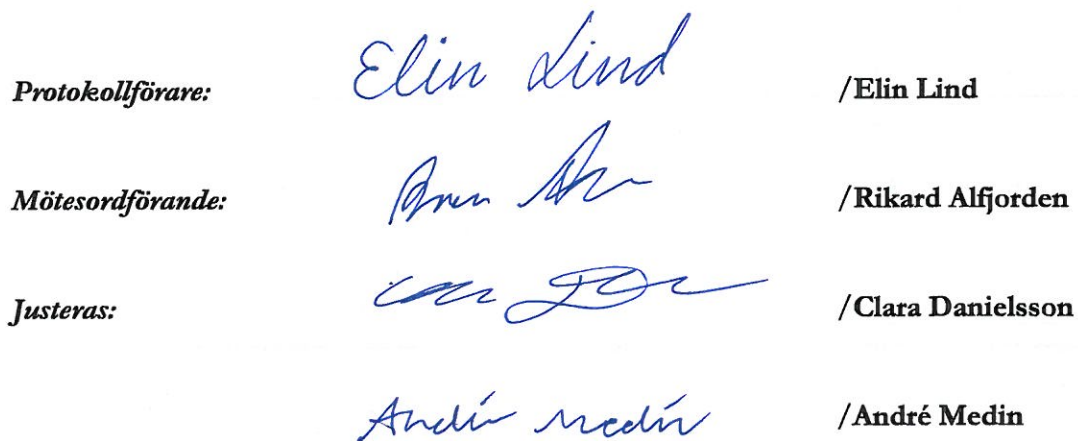 Protokollförare: Elin Lind /Elin Lind
Mötesordförande: /Rikard Alfjorden
Justeras: /Clara Danielsson
André Medin /André Medin